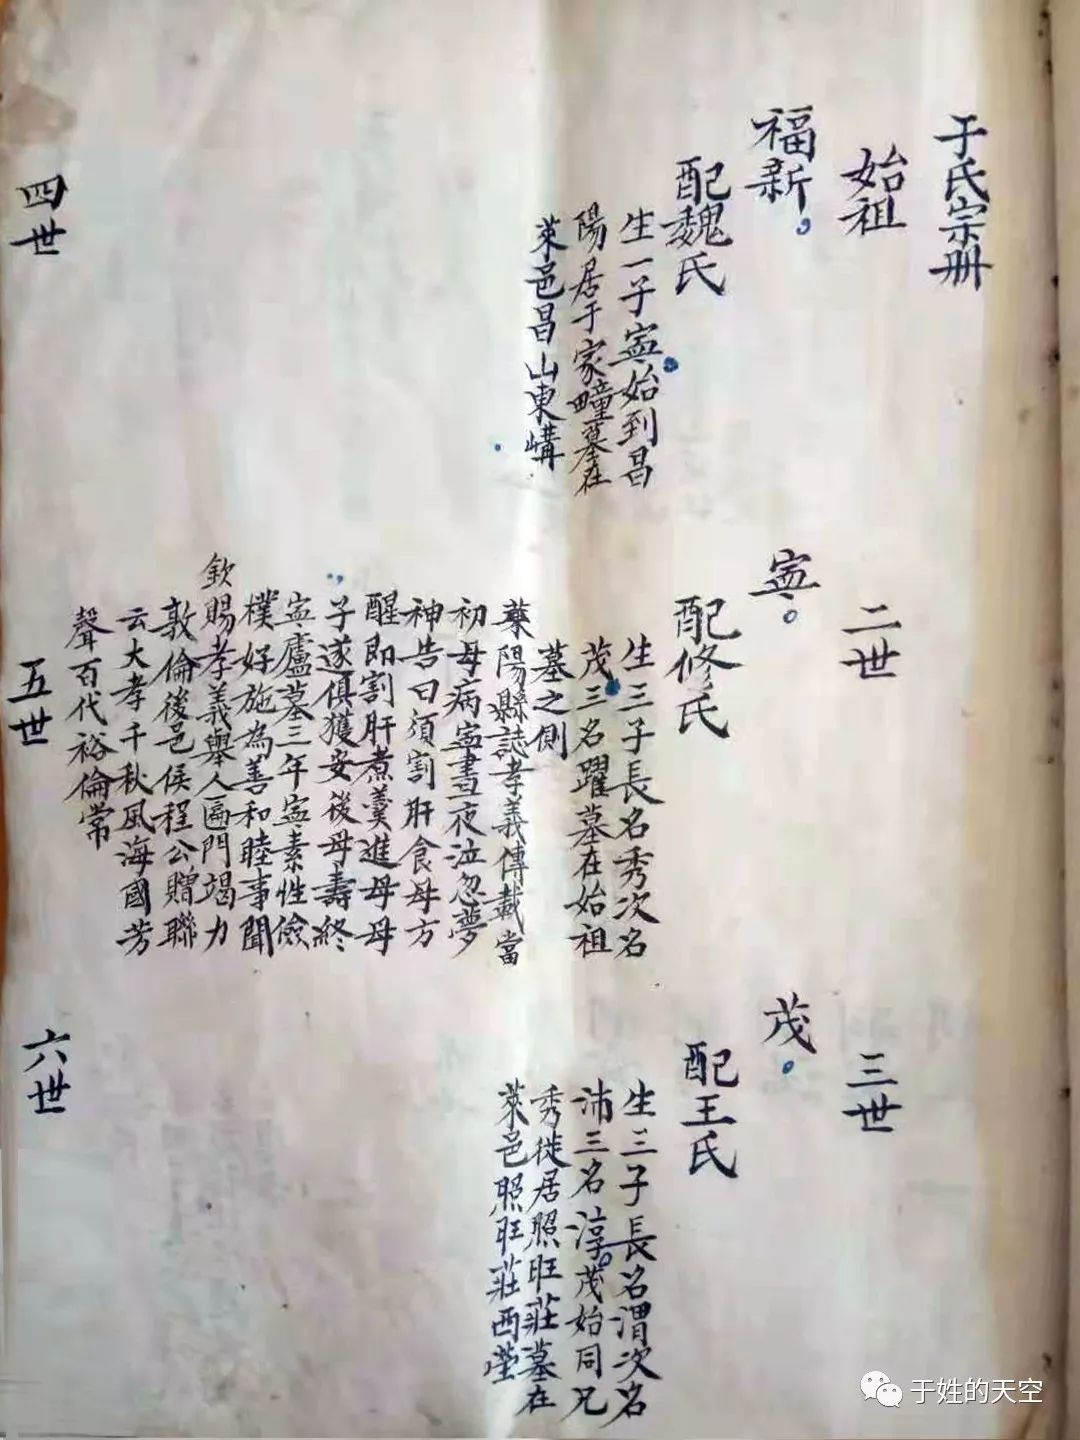 于氏宗册
始祖
福新
配魏氏
生一子寍始到昌
陽居于家疃墓在
萊邑昌山東
二世
寍
配修氏
生三子長名秀次名
茂三名躍墓在始祖
墓之側
陽縣誌孝義傳載當
初母病寍晝夜泣忽夢
神告曰須割肝食母方
醒即割肝煮羹進母母
子遂俱獲安後母壽終
寍廬墓三年寍素性儉
樸好施為善和睦事聞
欽賜孝義舉人匾門竭力
敦倫後邑侯程公贈聯
云大孝千秋風海國芳
聲百代裕倫常
三世
茂
配王氏
生三子長名渭次名
沛三名淳茂始同兄
秀徙居照旺莊墓在
萊邑照旺莊西塋
四世
五世
六世
于姓的天空